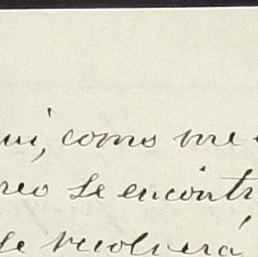 ui, como me
reo se encontr
se resolverá